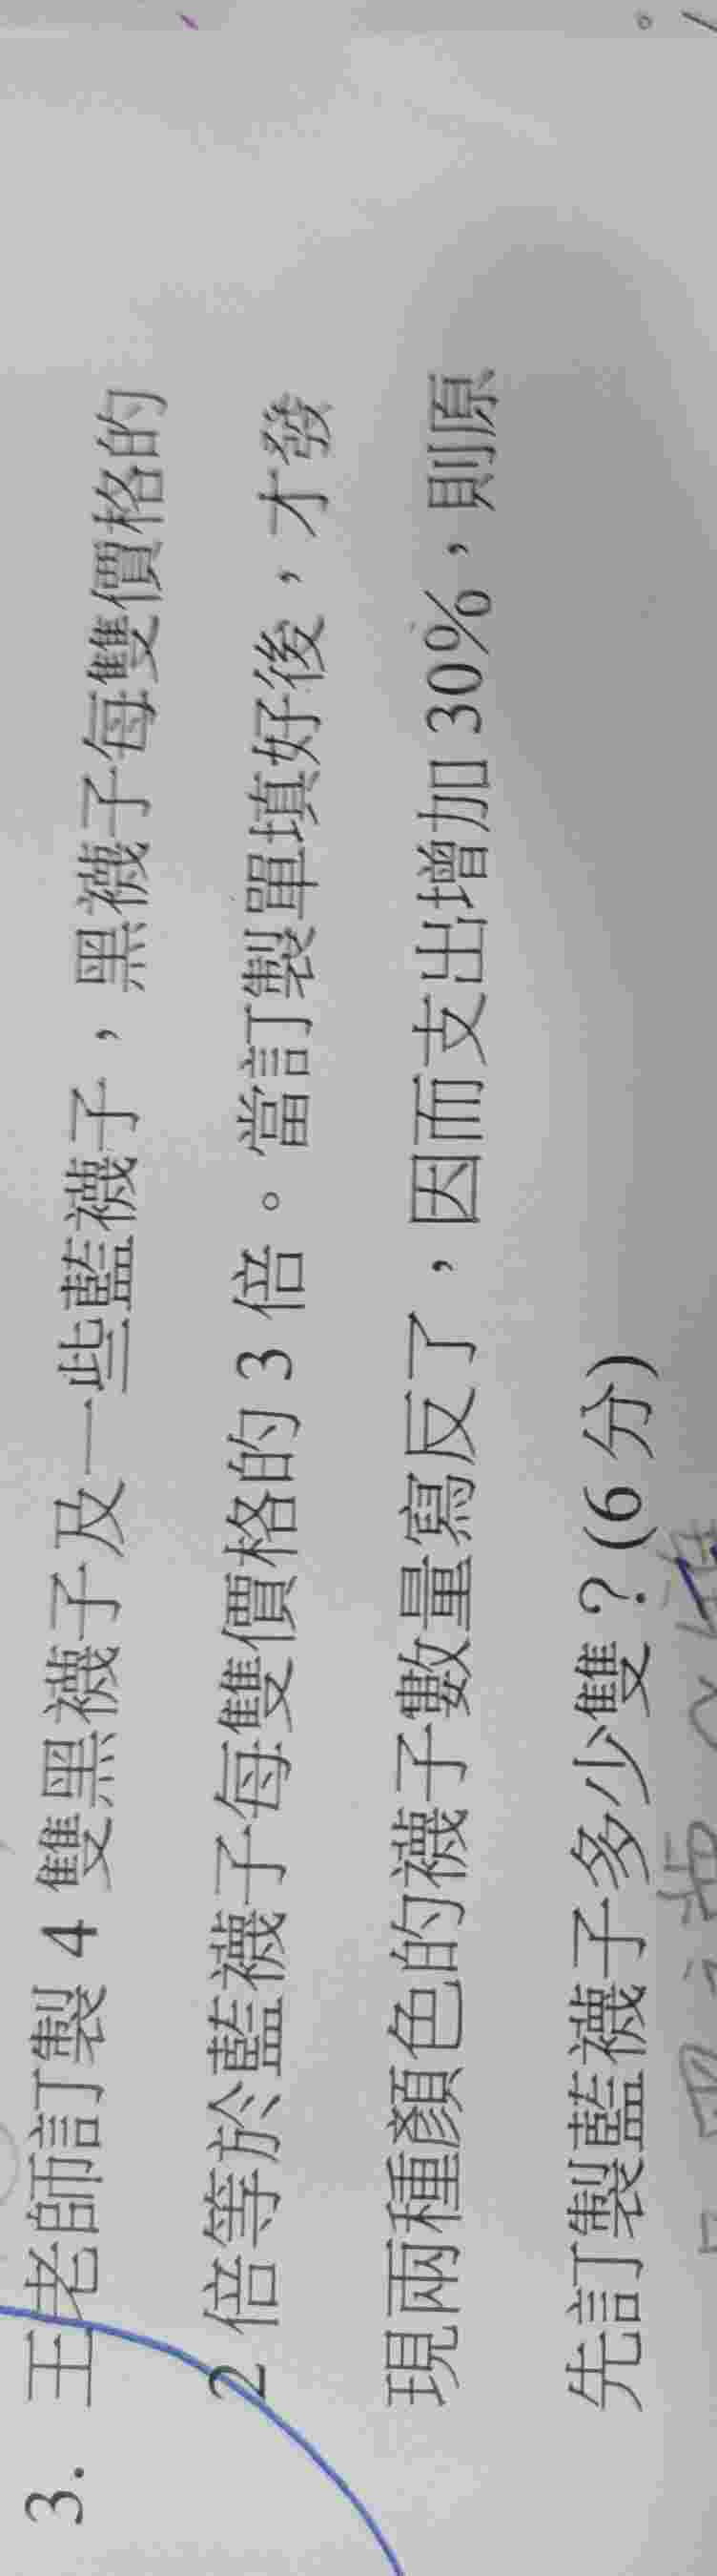 3. 王老師訂製 4 雙黑襪子及一些藍襪子，黑襪子每雙價格的
2 倍等於藍襪子每雙價格的 3 倍。當訂製單填好後，才發
現兩種顏色的襪子數量寫反了，因而支出增加 30%，則原
先訂製藍襪子多少雙？(6 分)